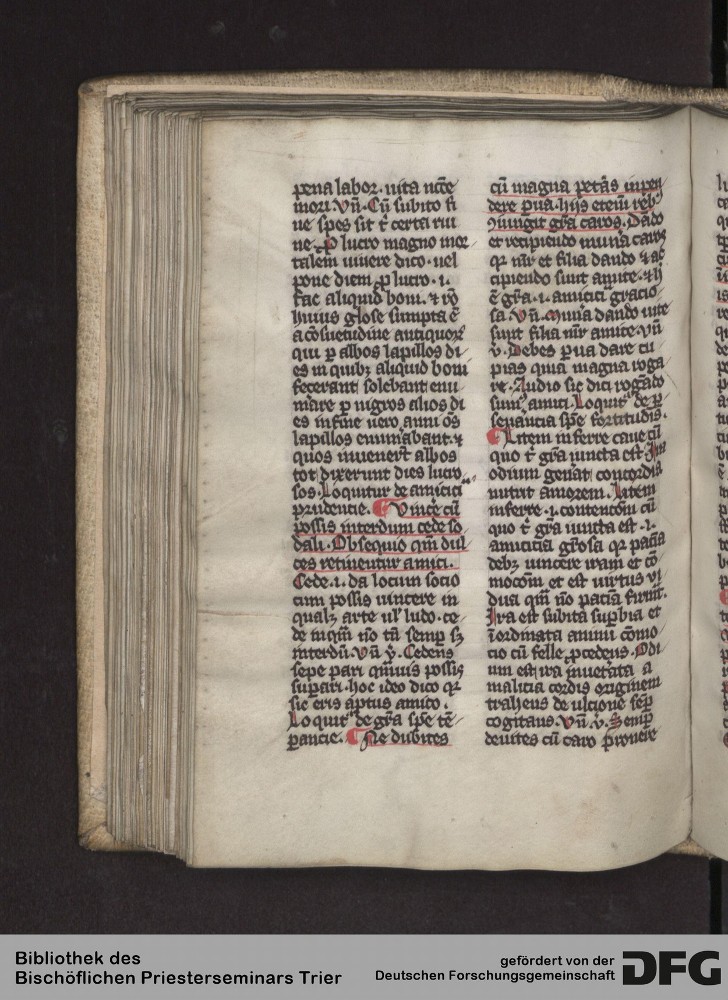 pena labor. uita nr̄e
mori. Vn̄. Cū subito fi
ne spes sit r̄ certa rui
ne. ꝓ lucro magno mor
talem uiuere dico. uel
pone diem ꝓ lucro. i.
fac aliquid boni. & rō
huius glose sumpta ē
a cōsuetudine antiquoꝝ
qui ꝑ albos lapillos di
es in quibꝫ aliquid boni
fecerant solebant enu
m̄are ꝑ nigros alios di
es in fine uero anni os
lapillos enum̄abant. &
quos inuener̄t albos
tot dixerunt dies lucro
sos. Loquitur de amicicī
prudencie. ¶ Vince cū
possis interdum cede so
dali. Obsequio qm̄ dul
ces retinentur amici.
Cede .i. da locum socio
cum possis uincere in
qualꝫ arte ul̓ ludo. ce
de inqm̄ nō tn̄ semꝑ sꝫ
interdū. Vn̄ ẏ. Cedens
sepe pari qm̄uis possis
suꝑari. hoc ideo dico qꝛ
sic eris aptus amico.
Loquit᷑ de gr̄a spē tē
ꝑancie. ¶ Ne dubites
cū magna petas inpen
dere ꝑua. hijs etenī reb᷒
ꝯiungit gr̄a caros. Dādo
et recipiendo mun̄a caroꝝ
qꝛ nr̄ et filia dando & ac
cipiendo sunt amice. & h̓
ē gr̄a .i. amicici graciō
sa. Vn̄. Mun̄a dando uite
sunt filia nīr amice. Vn̄
ẏ. Debes ꝑua dare cū
pias quia magna roga
re. Audio sic dici rogādo
sum᷒ amici. Loquit᷑ de ꝑ
seuancia spē fortitudis.
¶ Litem inferre caue cū
quo t̄ gr̄a iuncta est. Ira
odium gen̄at concordia
nutrit amorem. Litem
inferre .i. contencōm cū
quo t̄ gr̄a iuncta est .i.
amicicia gr̄osa qꝛ pac̄ia
debꝫ uincere iram et cō
mocōm et est uirtus vi
dua qm̄ nō pacīa firm̄.
Ira est subita suꝑbia et
īordinata animi cōmo
cio cū felle ꝓcedens. Odi
um est ira inuet̄ata a
malicia cordis originem
trahens de ulcione sēꝑ
cogitans. Vn̄. ẏ. Semꝑ
deuites cū caro ꝓmouere
Bibliothek des
Bischöflichen Priesterseminars Trier
gefördert von der
Deutschen Forschungsgemeinschaft
DFG